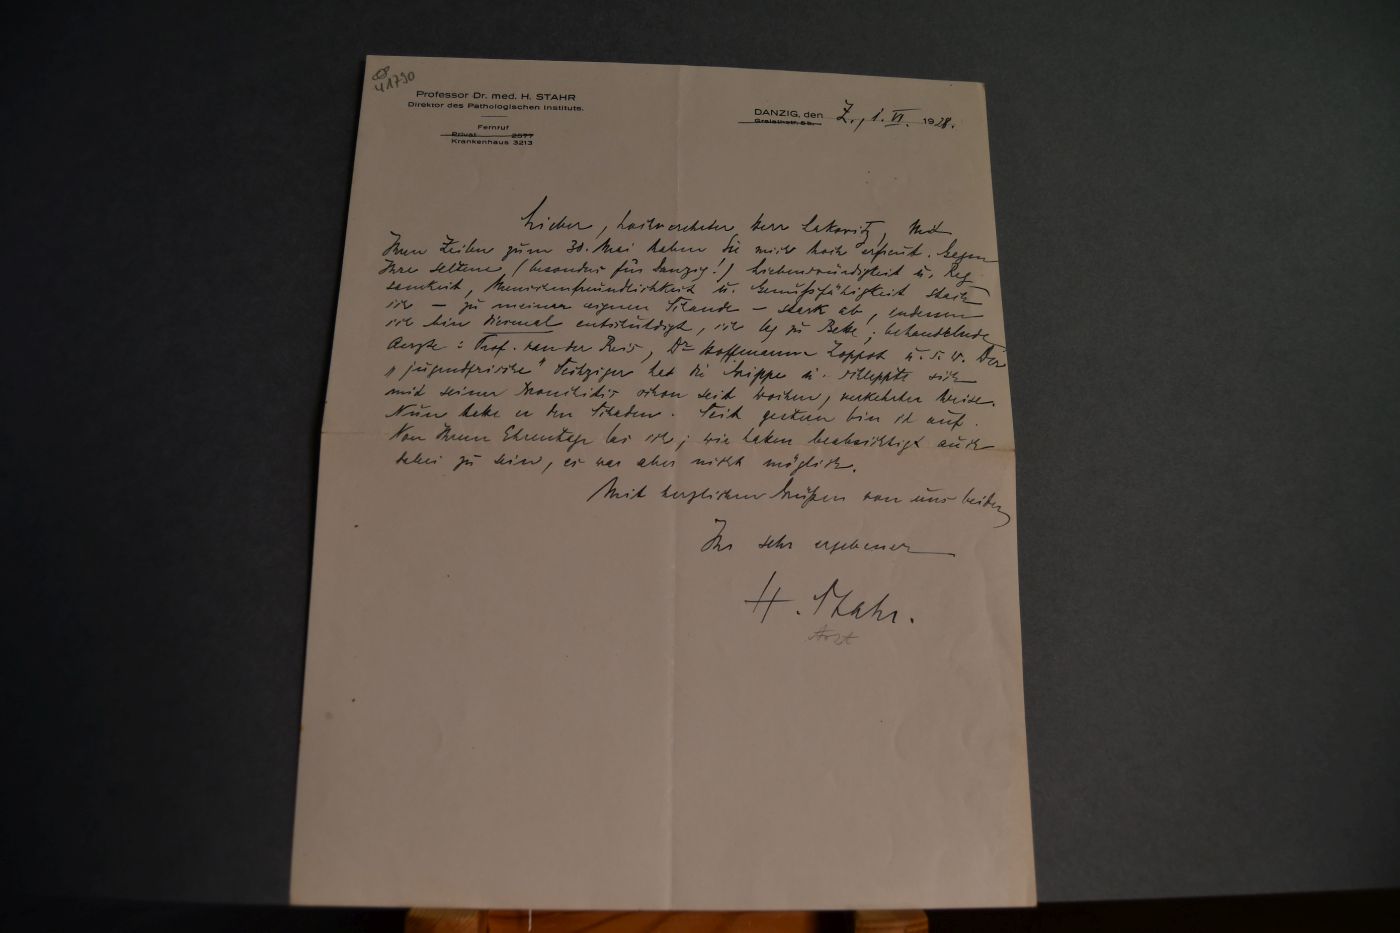 41790
Professor Dr. med. H. STAHR
Direktor des Pathologischen Instituts.
Fernruf
Privat 2577
Krankenhaus 3213
DANZIG, den Z., 1. VI. 1928.
Gralathstr.
Lieber, hochverehrter Herr Lakowitz, Mit
Ihren Zeilen zum 30. Mai haben Sie mich hoch erfreut. Gegen
Ihre seltene, (besonders für Danzig!) Liebenswürdigkeit u. Reg-
samkeit, Menschenfreundlichkeit u. Genußfähigkeit stach
ich – zu meiner eignen Schande – stark ab, indessen
ich bin diesmal entschuldigt, ich lag zu Bette; behandelnde
Aerzte: Prof. van der Reis, Dr Hoffmann Zoppot u.s.w. Der
„jugendfrische" Sechziger hat die Grippe u. schleppte sich
mit seiner Bronchitis schon seit Wochen, verkehrter Weise.
Nun hatte er den Schaden. Seit gestern bin ich auf.
Von Ihrem Ehrentage las ich; wir haben beabsichtigt auch
dabei zu sein, es war aber nicht möglich.
Mit herzlichen Grüßen von uns beiden
Ihr sehr ergebener
H. Stahr.
Arzt